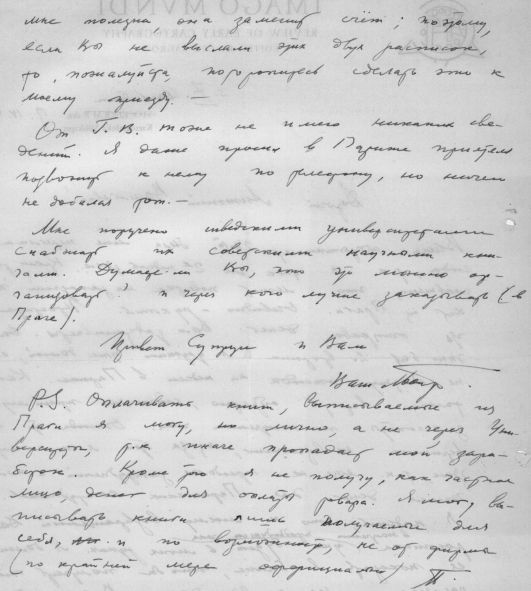 мне полезна, она заменит счёт; поэтому,
если Вы не выслали этих двух расписок,
то, пожалуйста, поторопитесь сделать это к
моему приезду. —
От Г. В. тоже не имею никаких све-
дений. Я даже просил в Париже приятеля
позвонить к нему по телефону, но ничего
не добился тот. —
Мне поручено шведскими университетами
снабжать их советскими научными кни-
гами. Думаете ли Вы, что это можно ор-
ганизовать? и через кого лучше заказывать (в
Праге).
Привет Супруге и Вам
Ваш
P.S. Оплачивать книги, выписываемые из
Праги я могу, но лично, а не через Уни-
верситеты, т.к иначе пропадает мой зара-
боток. Кроме того я не получу, как частное
лицо, денег для оплаты товара. Я могу вы-
писывать книги лишь получаемые для
себя, и по возможности, не от фирмы
(по крайней мере официально)
IMAGO MVNDI